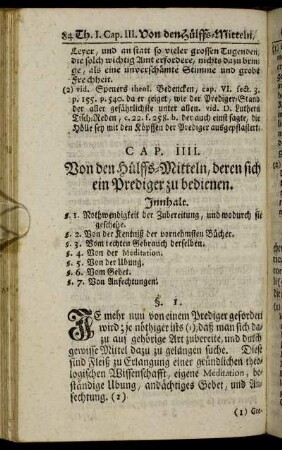 84 Th. I. Cap. III. Von den Hülffs-Mitteln,
Leyer, und an statt so vieler grossen Tugenden,
die solch wichtig Amt erfordere, nichts dazu brin-
ge, als eine unverschämte Stimme und grobe
Frechheit.
(2) vid. Speners theol. Bedencken, cap. VI. sect. 3.
p. 155. p. 540. da er zeiget, wie der Prediger-Stand
der aller gefährlichste unter allen. vid. D. Lutheri
Tisch-Reden, c. 22. f. 258. b. der auch einst sagte, die
Hölle sey mit den Köpffen der Prediger ausgepflastert.
CAP. IIII.
Von den Hülffs-Mitteln, deren sich
ein Prediger zu bedienen.
Innhalt.
§. 1. Nothwendigkeit der Zubereitung, und wodurch sie
geschehe.
§. 2. Von der Kentniß der vornehmsten Bücher.
§. 3. Vom rechten Gebrauch derselben.
§. 4. Von der Meditation.
§. 5. Von der Ubung.
§. 6. Vom Gebet.
§. 7. Von Anfechtungen.
§. 1.
JE mehr nun von einem Prediger gefordert
wird; je nöthiger ists (1), daß man sich da-
zu auf gehörige Art zubereite, und durch
gewisse Mittel dazu zu gelangen suche. Diese
sind Fleiß zu Erlangung einer gründlichen theo-
logischen Wissenschafft, eigene Meditation, be-
ständige Ubung, andächtiges Gebet, und An-
fechtung. (2)
(1) Ge-